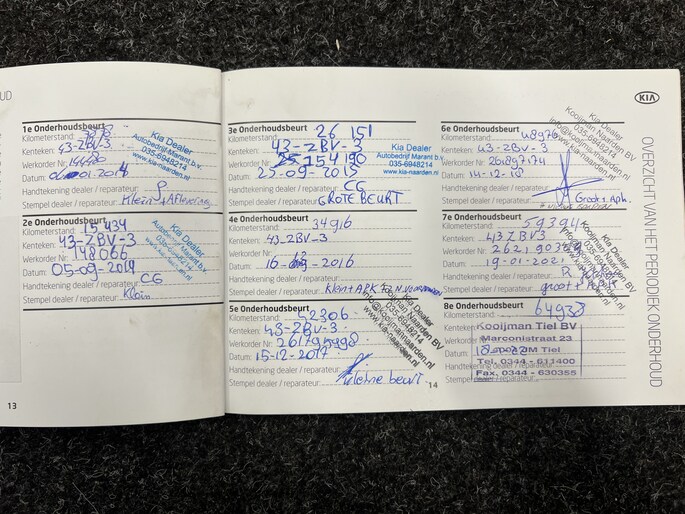 UD
1e Onderhoudsbeurt
Kilometerstand:
Kenteken: 43-ZBV-3
Werkorder Nr:
Datum:
Handtekening dealer / reparateur:
Stempel dealer / reparateur: Klein + Aflevering
Kia Dealer
Autobedrijf Marant b.v.
035-6948214
www.kia-naarden.nl
2e Onderhoudsbeurt
Kilometerstand: 15434
Kenteken: 43-ZBV-3
Werkorder Nr: 148066
Datum: 05-09-2014
Handtekening dealer / reparateur: CG
Stempel dealer / reparateur: Klein
Kia Dealer
Autobedrijf Marant b.v.
035-6948214
www.kia-naarden.nl
13
3e Onderhoudsbeurt
Kilometerstand: 26 151
Kenteken: 43-ZBV-3
Werkorder Nr:
Datum: 25-09-2015
Handtekening dealer / reparateur: CG
Stempel dealer / reparateur: GROTE BEURT
Kia Dealer
Autobedrijf Marant b.v.
035-6948214
www.kia-naarden.nl
4e Onderhoudsbeurt
Kilometerstand: 34916
Kenteken: 43-ZBV-3
Werkorder Nr:
Datum: 16-09-2016
Handtekening dealer / reparateur:
Stempel dealer / reparateur: Klein + APK
5e Onderhoudsbeurt
Kilometerstand: 42306
Kenteken: 43-ZBV-3
Werkorder Nr:
Datum: 15-12-2017
Handtekening dealer / reparateur:
Stempel dealer / reparateur: kleine beurt
Kia Dealer
Kooijman Naarden BV
035-6948214
info@kooijmannaarden.nl
www.kia-naarden.nl
14
KIA
6e Onderhoudsbeurt
Kilometerstand: 48976
Kenteken: 43-ZBV-3
Werkorder Nr:
Datum: 14-12-18
Handtekening dealer / reparateur:
Stempel dealer / reparateur: Groot + Apk
Kia Dealer
Kooijman Naarden BV
035-6948214
info@kooijmannaarden.nl
www.kia-naarden.nl
7e Onderhoudsbeurt
Kilometerstand: 59394
Kenteken: 43ZBV3
Werkorder Nr:
Datum: 19-01-2021
Handtekening dealer / reparateur:
Stempel dealer / reparateur: groot + APK
Kia Dealer
Kooijman Naarden BV
035-6948214
info@kooijmannaarden.nl
www.kia-naarden.nl
8e Onderhoudsbeurt
Kilometerstand:
Kenteken:
Werkorder Nr:
Datum:
Handtekening dealer / reparateur:
Stempel dealer / reparateur:
Kooijman Tiel BV
Marconistraat 23
Tiel
Tel. 0344 - 611400
Fax. 0344 - 630355
OVERZICHT VAN HET PERIODIEK ONDERHOUD